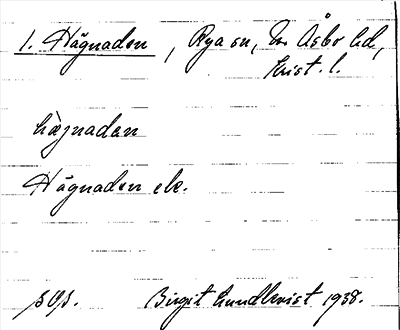 1. Hägnaden, Rya sn, N. Åsbo hd,
Krist. l.
hägnadan
Hägnaden ek.
s. 95.
Birgit Lundkvist 1938.